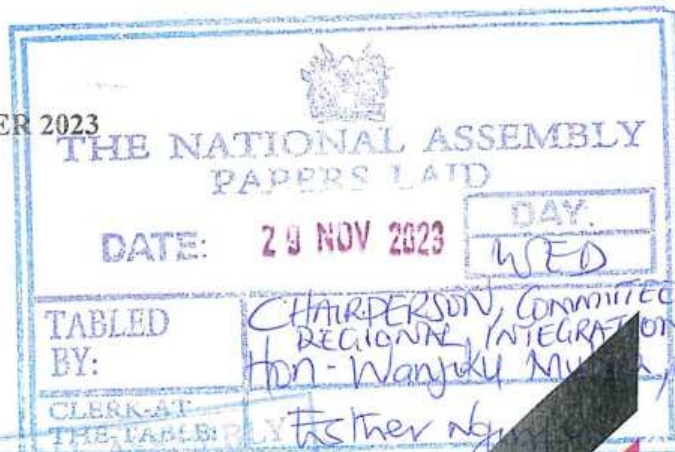 ER 2023
THE NATIONAL ASSEMBLY
PAPERS LAID
DATE: 29 NOV 2023
DAY.
WED
TABLED BY:
CHAIRPERSON, COMMITTEE
REGIONAL, INTEGRATION
Hon-Wanjiku
CLERK-AT
THE-TABLE:
Esther